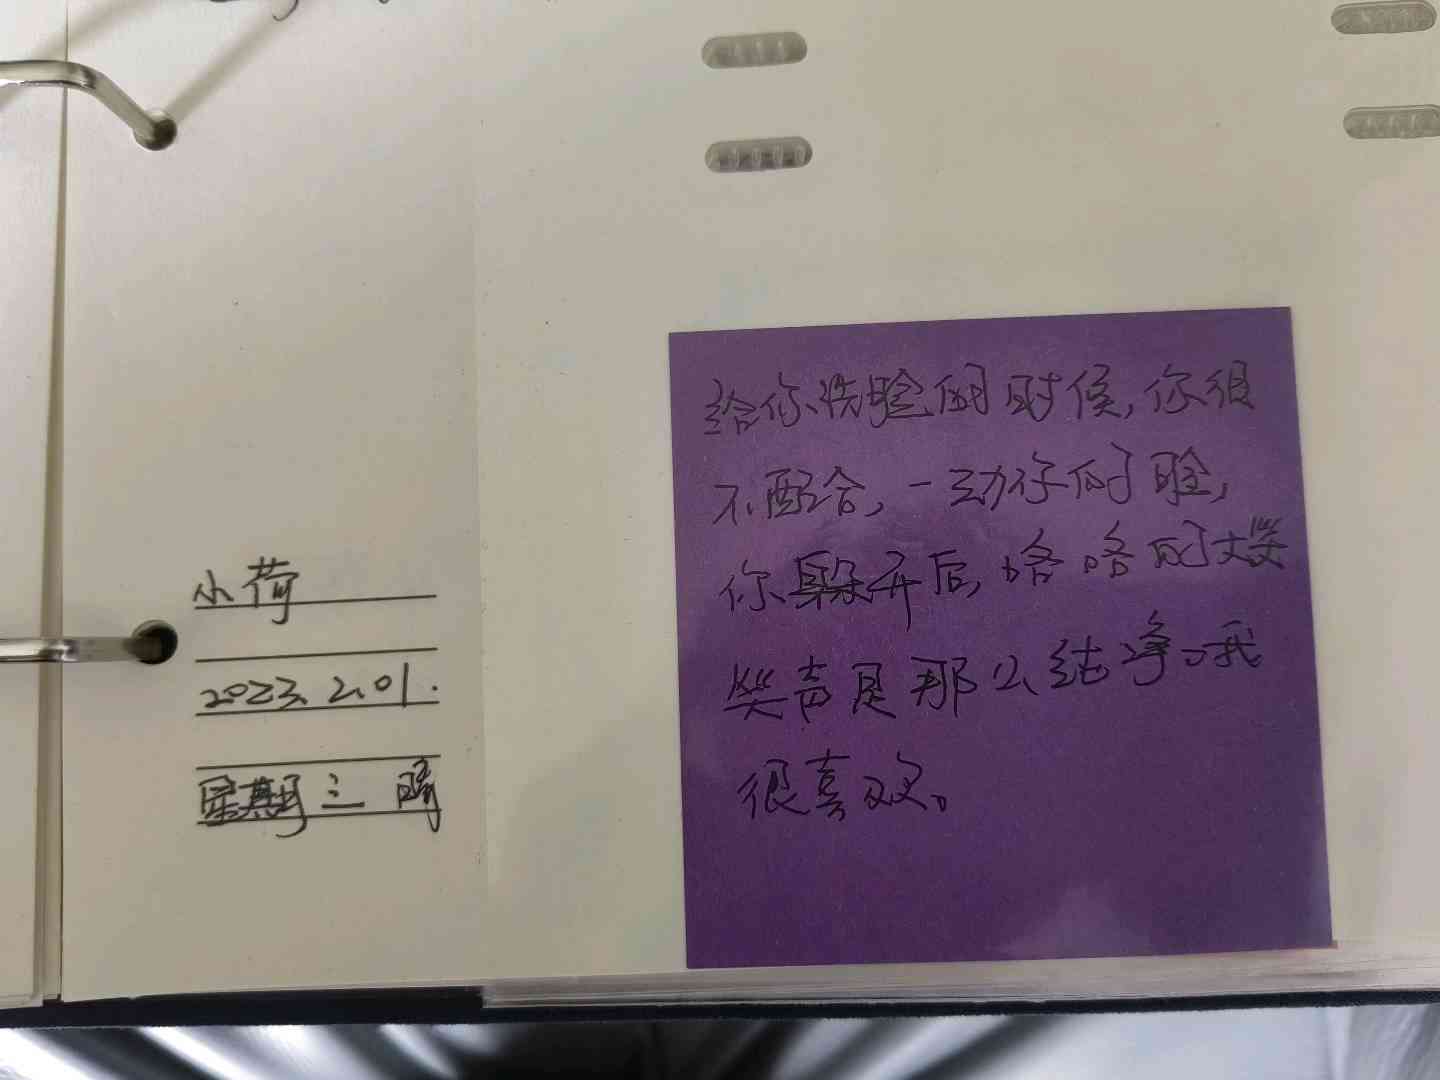 小荷
2023.2.01.
星期三 晴
给你洗脸的时候,你很
不配合,一动你的脸,
你躲开后,咯咯的大笑
笑声是那么纯净,我
很喜欢。